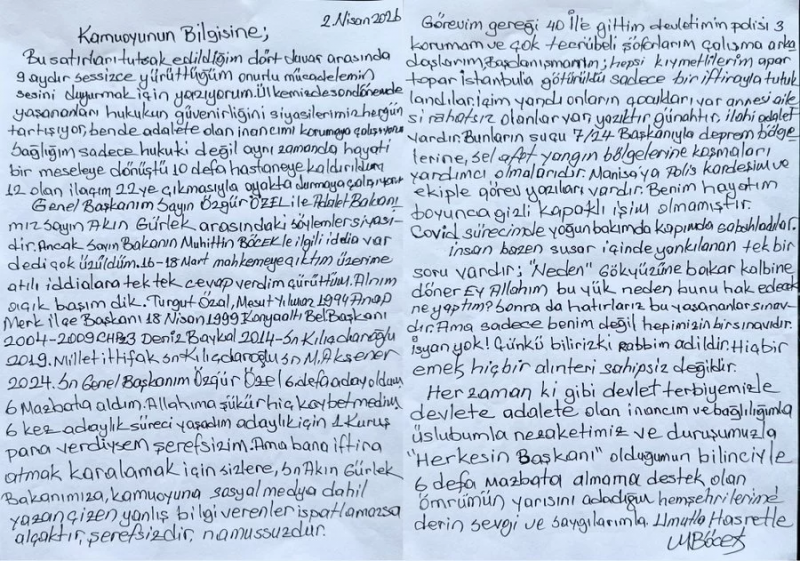 2 Nisan 2026
Kamuoyunun Bilgisine;
Bu satırları tutsak edildiğim dört duvar arasında
9 aydır sessizce yürüttüğüm onurlu mücadelemin
sesini duyurmak için yazıyorum. Ülkemizde son dönemde
yaşananları hukukun güvenirliğini siyasilerimiz hergün
tartışıyor, bende adalete olan inancımı korumaya çalışıyorum
Sağlığım sadece hukuki değil aynı zamanda hayati
bir meseleye dönüştü 10 defa hastaneye kaldırıldım
12 olan ilaçım 22 ye çıkmasıyla ayakta durmaya çalışıyorum
Genel Başkanım Sayın Özgür ÖZEL ile Adalet Bakanı
mız Sayın Akın Gürlek arasındaki söylemler siyasi-
dir. Ancak Sayın Bakanın Muhittin BÖCEK le ilgili iddia var
dedi çok üzüldüm. 16-18 Mart mahkemeye çıktım üzerine
atılı iddialara tek tek cevap verdim çürüttüm. Alnım
açık başım dik. Turgut Özal, Mesut Yılmaz 1994 Anap
Merk ilçe Başkanı 18 Nisan 1999 Konyaaltı Bel Başkanı
2004-2009 CHP Deniz Baykal 2014 - Sn Kılıçdaroğlu
2019. Millet ittifak Sn Kılıçdaroğlu Sn M. Akşener
2024. Sn Genel Başkanım Özgür Özel 6 defa aday oldum
6 Mazbata aldım. Allahıma şükür hiç kaybetmedim
6 kez adaylık süreci yaşadım adaylık için 1 Kuruş
para verdiysem şerefsizim. Ama bana iftira
atmak karalamak için sizlere, Sn Akın Gürlek
Bakanımıza, kamuoyuna sosyal medya dahil
yazan çizen yanlış bilgi verenler ispatlamazsa
alçaktır, şerefsizdir, namussuzdur.
Görevim gereği 40 ile gittim devletimin polisi 3
korumam ve çok tecrübeli şoförlarım çalışma arka
daşlarım, Başdanışmanım; hepsi kıymetlilerim apar
topar istanbula götürüldü sadece bir iftirayla tutuk
landılar. içim yandı onların çocukları var annesi aile
si rahatsız olanlar var yazıktır günahtır. ilahi adalet
vardır. Bunların suçu 7/24 Başkanıyla deprem bölge
lerine, sel afet yangın bölgelerine koşmaları
yardımcı olmalarıdır. Manisa'ya Polis kardeşim ve
ekiple görev yazıları vardır. Benim hayatım
boyunca gizli kapaklı işim olmamıştır.
Covid sürecinde yoğun bakımda kapımda sabahladılar.
insan bazen susar içinde yankılanan tek bir
soru vardır; "Neden" Gökyüzüne bakar kalbine
döner Ey Allahım bu yük neden bunu hak edecek
ne yaptım? Sonra da hatırlarız bu yaşananlar sınav-
dır. Ama sadece benim değil hepimizin bir sınavıdır.
isyan yok! Çünkü biliriz ki Rabbim adildir. Hiçbir
emek hiçbir alınteri sahipsiz değildir.
Her zaman ki gibi devlet terbiyemizle
devlete adalete olan inancım ve bağlılığımla
üslubumla nezaketimiz ve duruşumuzla
"Herkesin Başkanı" olduğumun bilinciyle
6 defa Mazbata almama destek olan
ömrümün yarısını adadığım hemşehrilerime
derin sevgi ve saygılarımla Umutla Hasretle
MBöcek